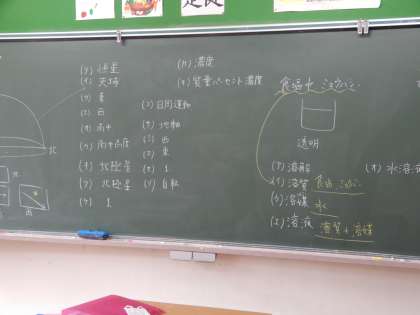 (ア) 恒星
(イ) 天球
(ウ) 東
(エ) 西
(オ) 南中
(カ) 南中高度
(キ) 北極星
(ク) 北極星
(ケ) 1
(コ) 日周運動
(サ) 地軸
(シ) 西
(ス) 東
(セ) 1
(ソ) 自転
(カ) 濃度
(キ) 質量パーセント濃度
北
北
西
食塩水
透明
(ア) 溶解
(イ) 溶質
(ウ) 溶媒 水
(エ) 溶液 溶質+溶媒
(オ) 水溶液